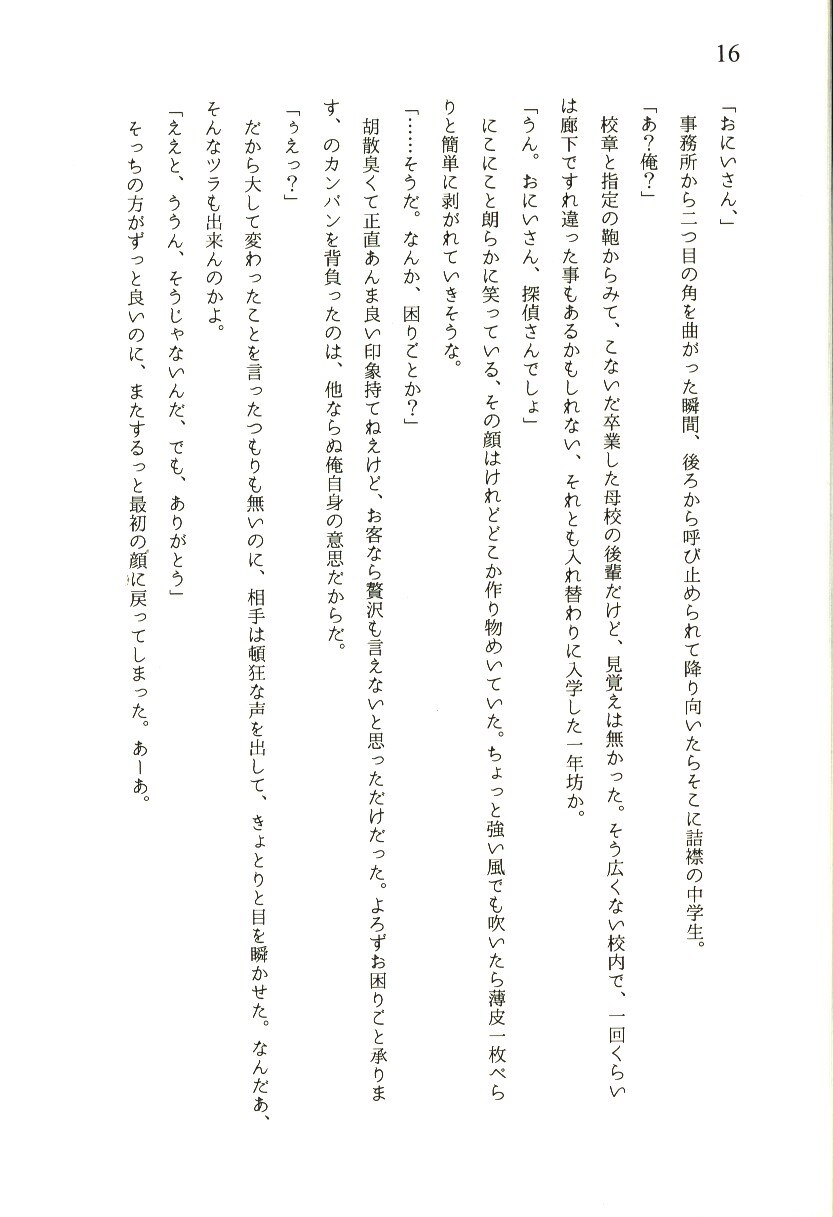 16
「おにいさん、」
事務所から二つ目の角を曲がった瞬間、後ろから呼び止められて降り向いたらそこに詰襟の中学生。
「あ？俺？」
校章と指定の鞄からみて、こないだ卒業した母校の後輩だけど、見覚えは無かった。そう広くない校内で、一回くらい
は廊下ですれ違った事もあるかもしれない、それとも入れ替わりに入学した一年坊か。
「うん。おにいさん、探偵さんでしょ」
にこにこと朗らかに笑っている、その顔はけれどどこか作り物めいていた。ちょっと強い風でも吹いたら薄皮一枚べら
りと簡単に剥がれていきそうな。
「……そうだ。なんか、困りごとか？」
胡散臭くて正直あんま良い印象持てねえけど、お客なら贅沢も言えないと思っただけだった。よろずお困りごと承りま
す、のカンバンを背負ったのは、他ならぬ俺自身の意思だからだ。
「ぅえっ？」
だから大して変わったことを言ったつもりも無いのに、相手は頓狂な声を出して、きょとりと目を瞬かせた。なんだあ、
そんなツラも出来んのかよ。
「ええと、ううん、そうじゃないんだ、でも、ありがとう」
そっちの方がずっと良いのに、またするっと最初の顔に戻ってしまった。あーあ。